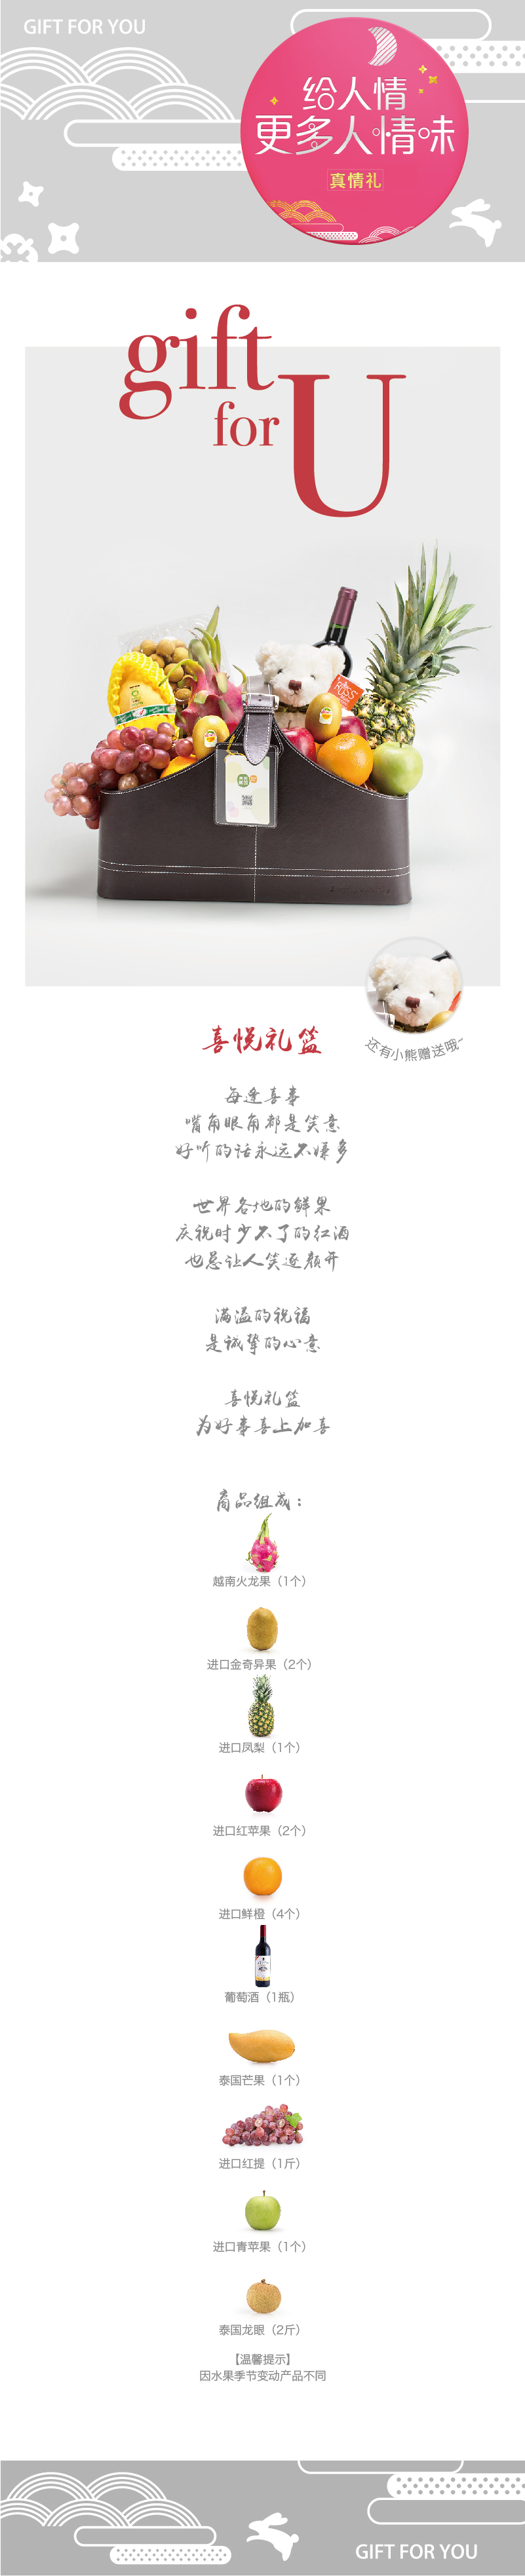 GIFT FOR YOU
给人情
更多人情味
真情礼
gift
for U
喜悦礼篮
还有小熊赠送哦~
每逢喜事
嘴角眼角都是笑意
好听的话永远不嫌多
世界各地的鲜果
庆祝时少不了的红酒
也总让人笑逐颜开
满溢的祝福
是诚挚的心意
喜悦礼篮
为好事喜上加喜
商品组成：
越南火龙果（1个）
进口金奇异果（2个）
进口凤梨（1个）
进口红苹果（2个）
进口鲜橙（4个）
葡萄酒（1瓶）
泰国芒果（1个）
进口红提（1斤）
进口青苹果（1个）
泰国龙眼（2斤）
【温馨提示】
因水果季节变动产品不同
GIFT FOR YOU